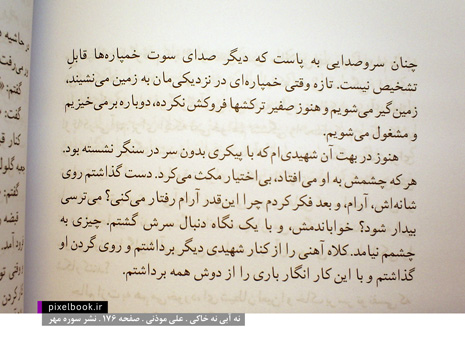 چنان سروصدایی به پاست که دیگر صدای سوت خمپاره‌ها قابلِ
تشخیص نیست. تازه وقتی خمپاره‌ای در نزدیکی‌مان به زمین می‌نشیند،
زمین‌گیر می‌شویم و هنوز صفیر ترکشها فروکش نکرده، دوباره برمی‌خیزیم
و مشغول می‌شویم.
هنوز در بهت آن شهیدی‌ام که با پیکری بدون سر در سنگر نشسته بود.
هر که چشمش به او می‌افتاد، بی‌اختیار مکث می‌کرد. دست گذاشتم روی
شانه‌اش، آرام، و بعد فکر کردم چرا این‌قدر آرام رفتار می‌کنی؟ می‌ترسی
بیدار شود؟ خواباندمش، و با یک نگاه دنبال سرش گشتم. چیزی به
چشمم نیامد. کلاه آهنی را از کنار شهیدی دیگر برداشتم و روی گردن او
گذاشتم و با این کار انگار باری را از دوش همه برداشتم.
pixelbook.ir
نه آبی نه خاکی . علی موذنی . صفحه ۱۷۶ . نشر سوره مهر